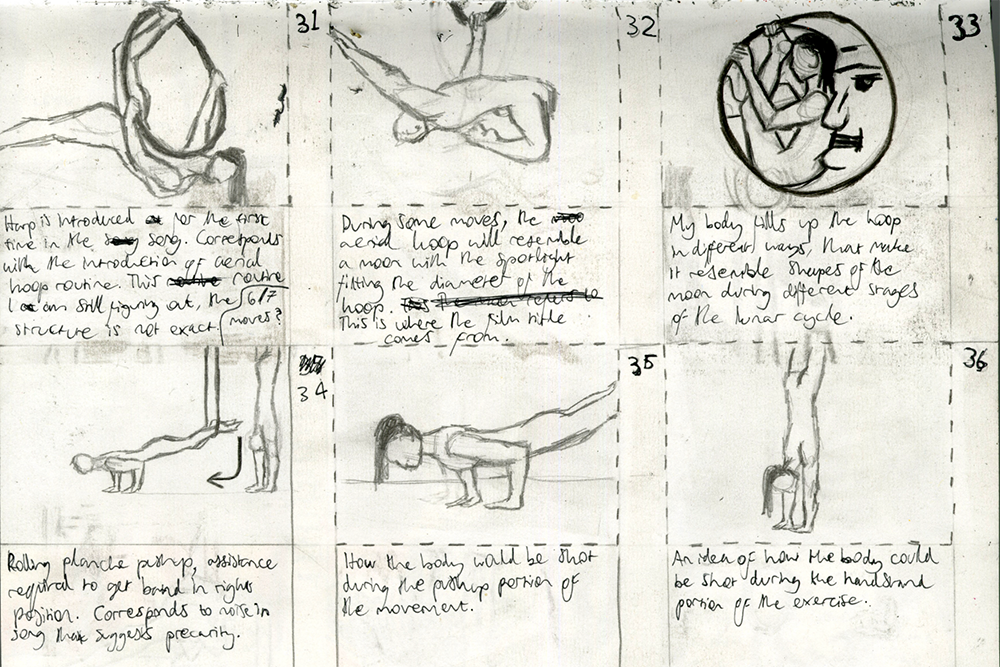 31
Hoop is introduced for the first
time in the song. Corresponds
with the introduction of aerial
hoop routine. This routine
I am still figuring out, the
structure is not exact
6/7
moves?
32
During some moves, the
aerial hoop will resemble
a moon with the spotlight
fitting the diameter of the
hoop.
This is where the film title
comes from.
33
My body fills up the hoop
in different ways, that make
it resemble shapes of the
moon during different stages
of the lunar cycle.
34
Rolling planche pushup, assistance
required to get band in right
position. Corresponds to noise in
song that suggests precarity.
35
How the body would be shot
during the pushup portion of
the movement.
36
An idea of how the body could
be shot during the handstand
portion of the exercise.